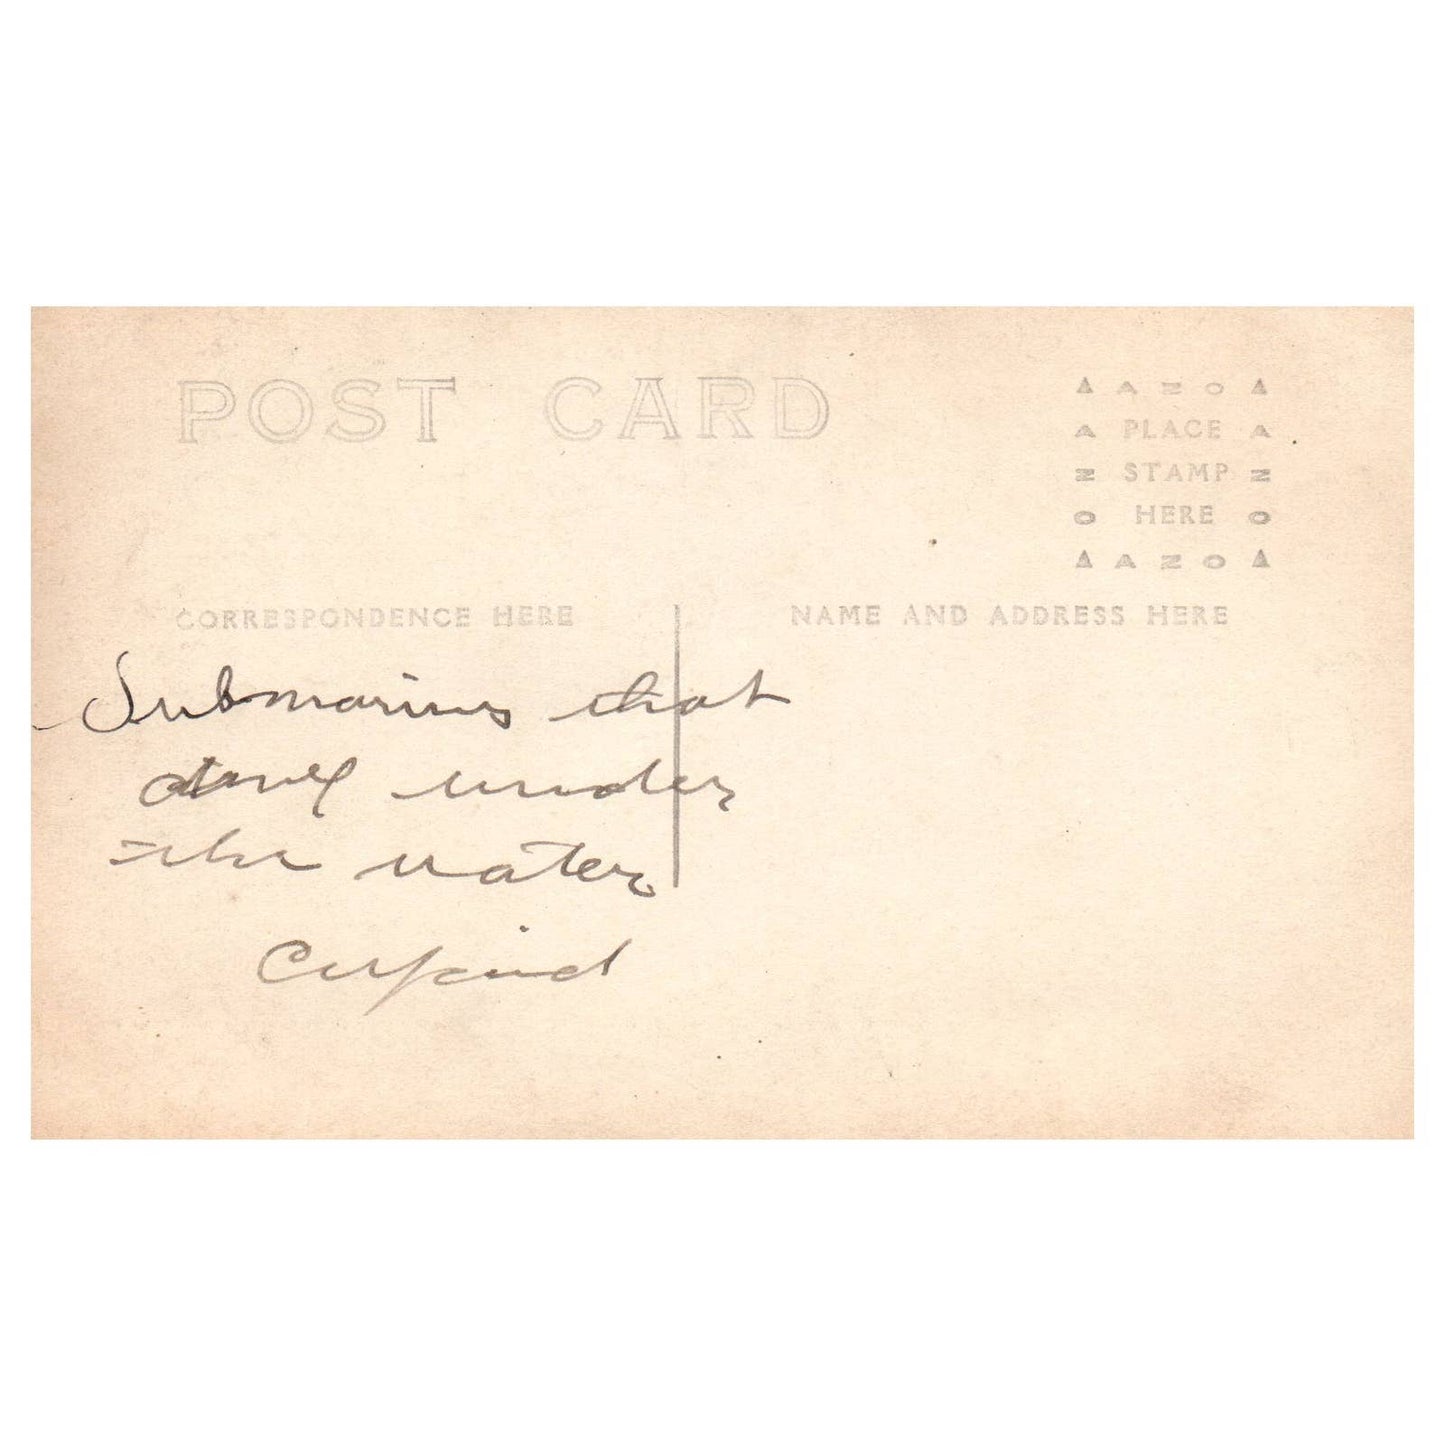 POST CARD
AZO
PLACE
STAMP
HERE
AZO
CORRESPONDENCE HERE
NAME AND ADDRESS HERE
Submarines that
under
the water